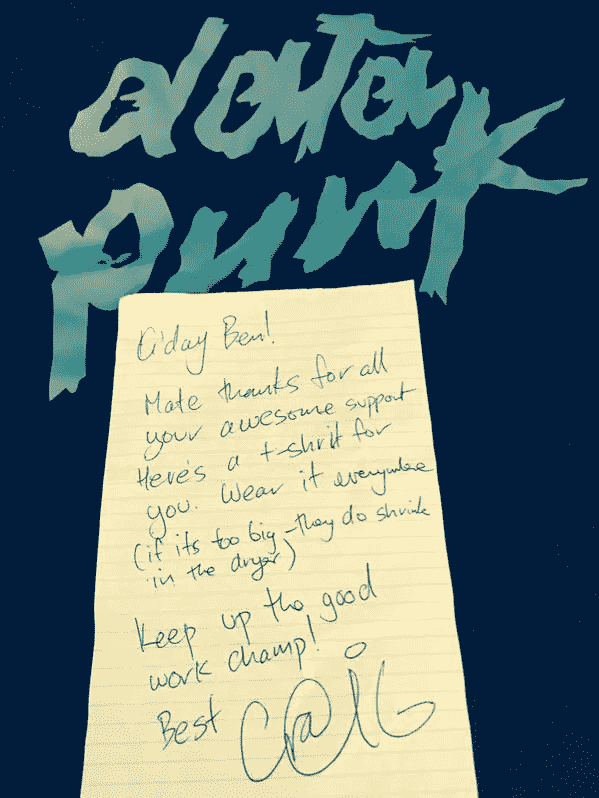 data
punk
G'day Ben!
Mate thanks for all
your awesome support
Here's a t-shrit for
you. Wear it everywhere
(if its too big - they do shrink
in the dryer)
Keep up the good
work champ!
Best Craig